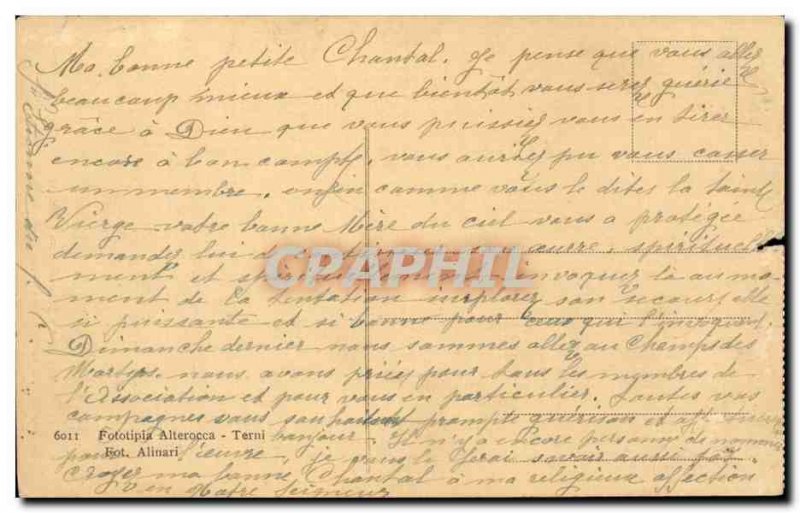 Ma bonne petite Chantal, je pense que vous allez
beaucoup mieux et que bientôt vous serez guérie
grâce à Dieu que vous puissiez vous en tirer
encore à bon compte, vous auriez pu vous casser
un membre, enfin comme vous le dites la Sainte
Vierge votre bonne Mère du ciel vous a protégée
demandez lui de
CPARHIL
spirituelle
ment et
invoquez là au mo
ment de la tentation implorez son secours elle
si puissante et si bonne pour ceux qui l'invoquent.
Dimanche dernier nous sommes allez au Champs des
Martyrs nous avons priez pour tous les membres de
l'Association et pour vous en particulier. Toutes vos
compagnes vous souhaitent prompte guérison et
6011 Fototipia Alterocca - Terni
bonjour. Il n'y a encore personne de
Fot. Alinari
pour l'œuvre, je vous le ferai savoir aussi
Croyez ma bonne Chantal à ma religieuse affection
en Notre Seigneur